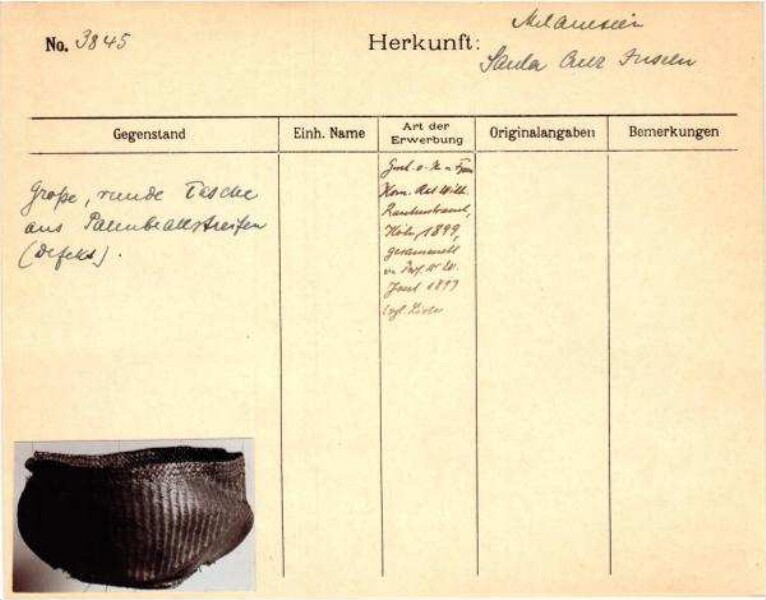 No. 3845
Herkunft: Melanesien
Santa Cruz Inseln
Gegenstand
Einh. Name
Art der Erwerbung
Originalangaben
Bemerkungen
Große, runde Tasche
aus Palmblattstreifen
(Defekt).
Gesch.
Kom. Rat Wilh.
Rautenstrauch,
Köln, 1899,
gesammelt
v. Prof.
Joest 1897